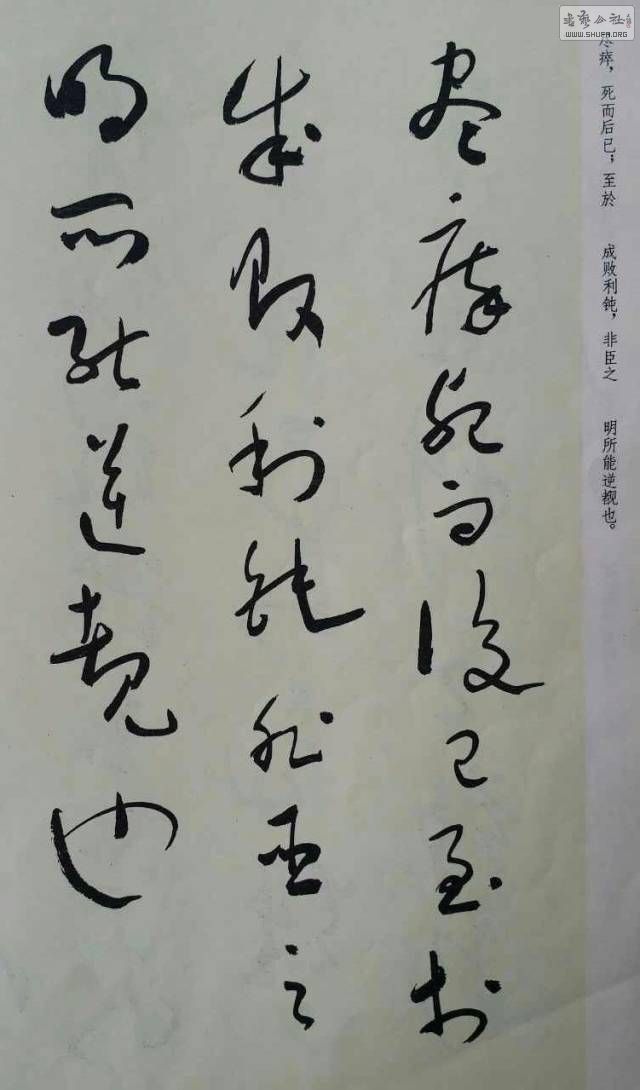 尽瘁死而後已至於
成败利钝非臣之
明所能逆覩也
尽瘁，死而后已；至於
成败利钝，非臣之
明所能逆覩也。
书艺公社
WWW.SHUFA.ORG